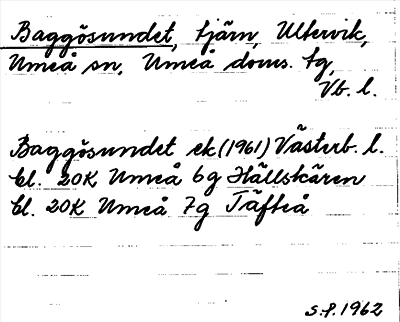 Baggösundet, tjärn, Ultervik,
Umeå sn, Umeå doms. tg,
Vb. l.
Baggösundet ek (1961) Västerb. l.
bl. 20K Umeå 6g Hällskären
bl. 20K Umeå 7g Täfteå
S.P. 1962